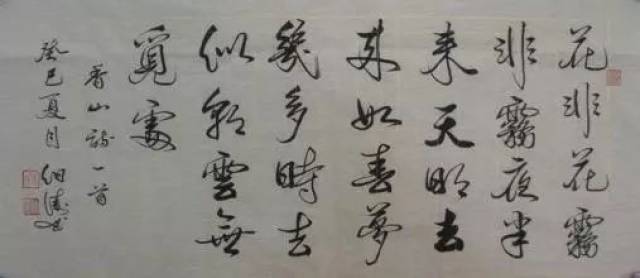 花非花霧
非霧夜半
来天明去
来如春夢
幾多時去
似朝雲無
覓處
香山詩一首
癸巳夏月